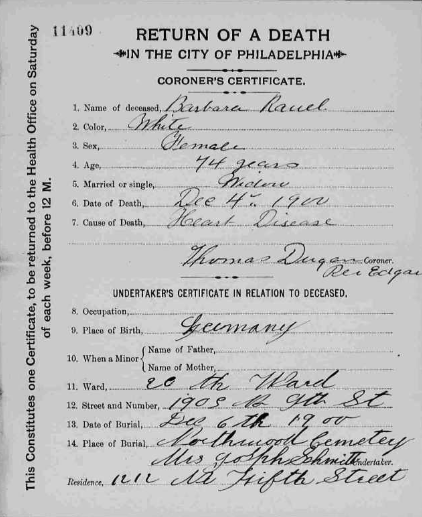 11409
RETURN OF A DEATH
IN THE CITY OF PHILADELPHIA
CORONER'S CERTIFICATE.
1. Name of deceased, Barbara Rauel
2. Color, White
3. Sex, Female
4. Age, 74 years
5. Married or single, Widow
6. Date of Death, Dec 4th, 1900
7. Cause of Death, Heart Disease
Thomas Dugan Coroner.
Per Edgar
UNDERTAKER'S CERTIFICATE IN RELATION TO DECEASED.
8. Occupation,
9. Place of Birth, Germany
10. When a Minor { Name of Father,
Name of Mother,
11. Ward, 20 th Ward
12. Street and Number, 1903 N 9th St
13. Date of Burial, Dec 6th 1900
14. Place of Burial, Northwood Cemetey
Mrs Joseph Schmitt Undertaker.
Residence, 1212 Fifth Street
This Constitutes one Certificate, to be returned to the Health Office on Saturday
of each week, before 12 M.